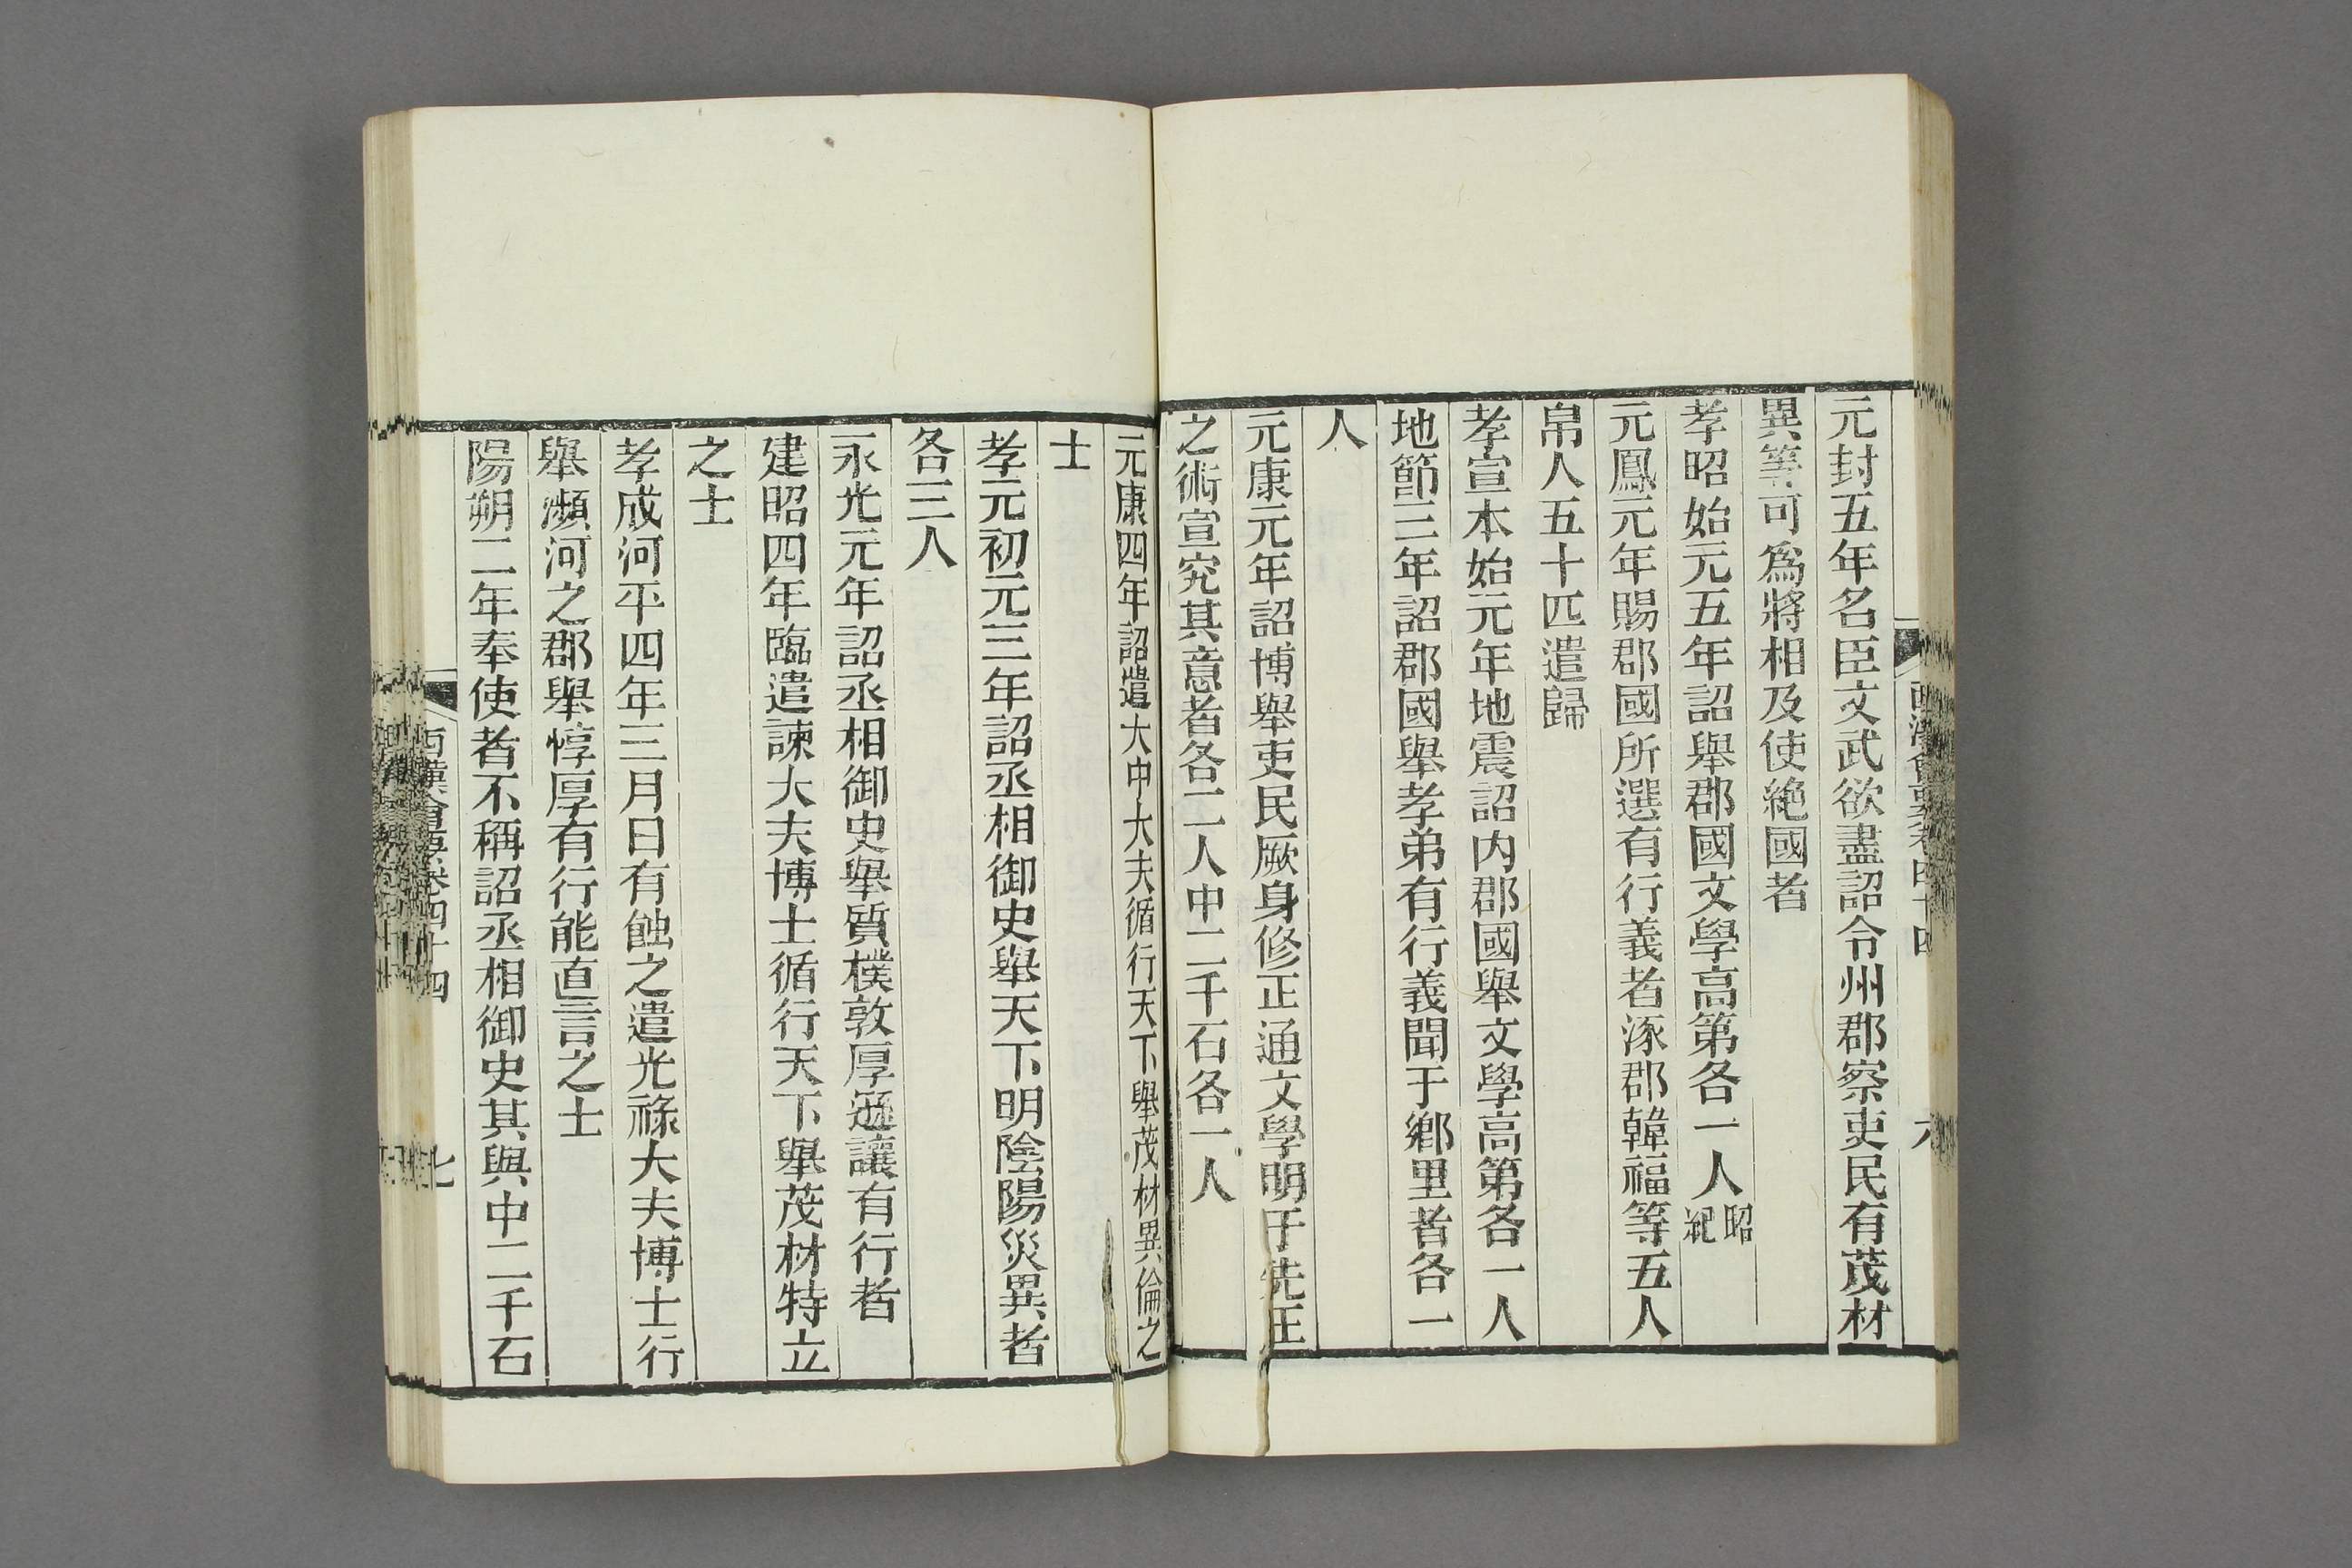 西漢會要卷四十四
六
元封五年名臣文武欲盡詔令州郡察吏民有茂材
異等可爲將相及使絶國者
孝昭始元五年詔舉郡國文學高第各一人昭紀
元鳳元年賜郡國所選有行義者涿郡韓福等五人
帛人五十匹遣歸
孝宣本始元年地震詔内郡國舉文學高第各一人
地節三年詔郡國舉孝弟有行義聞于鄉里者各一
人
元康元年詔博舉吏民厥身修正通文學明于先王
之術宣究其意者各二人中二千石各一人
元康四年詔遣大中大夫循行天下舉茂材異倫之
士
孝元初元三年詔丞相御史舉天下明陰陽災異者
各三人
永光元年詔丞相御史舉質樸敦厚遜讓有行者
建昭四年臨遣諫大夫博士循行天下舉茂材特立
之士
孝成河平四年三月日有蝕之遣光祿大夫博士行
舉瀕河之郡舉惇厚有行能直言之士
陽朔二年奉使者不稱詔丞相御史其與中二千石
西漢會要卷四十四
七